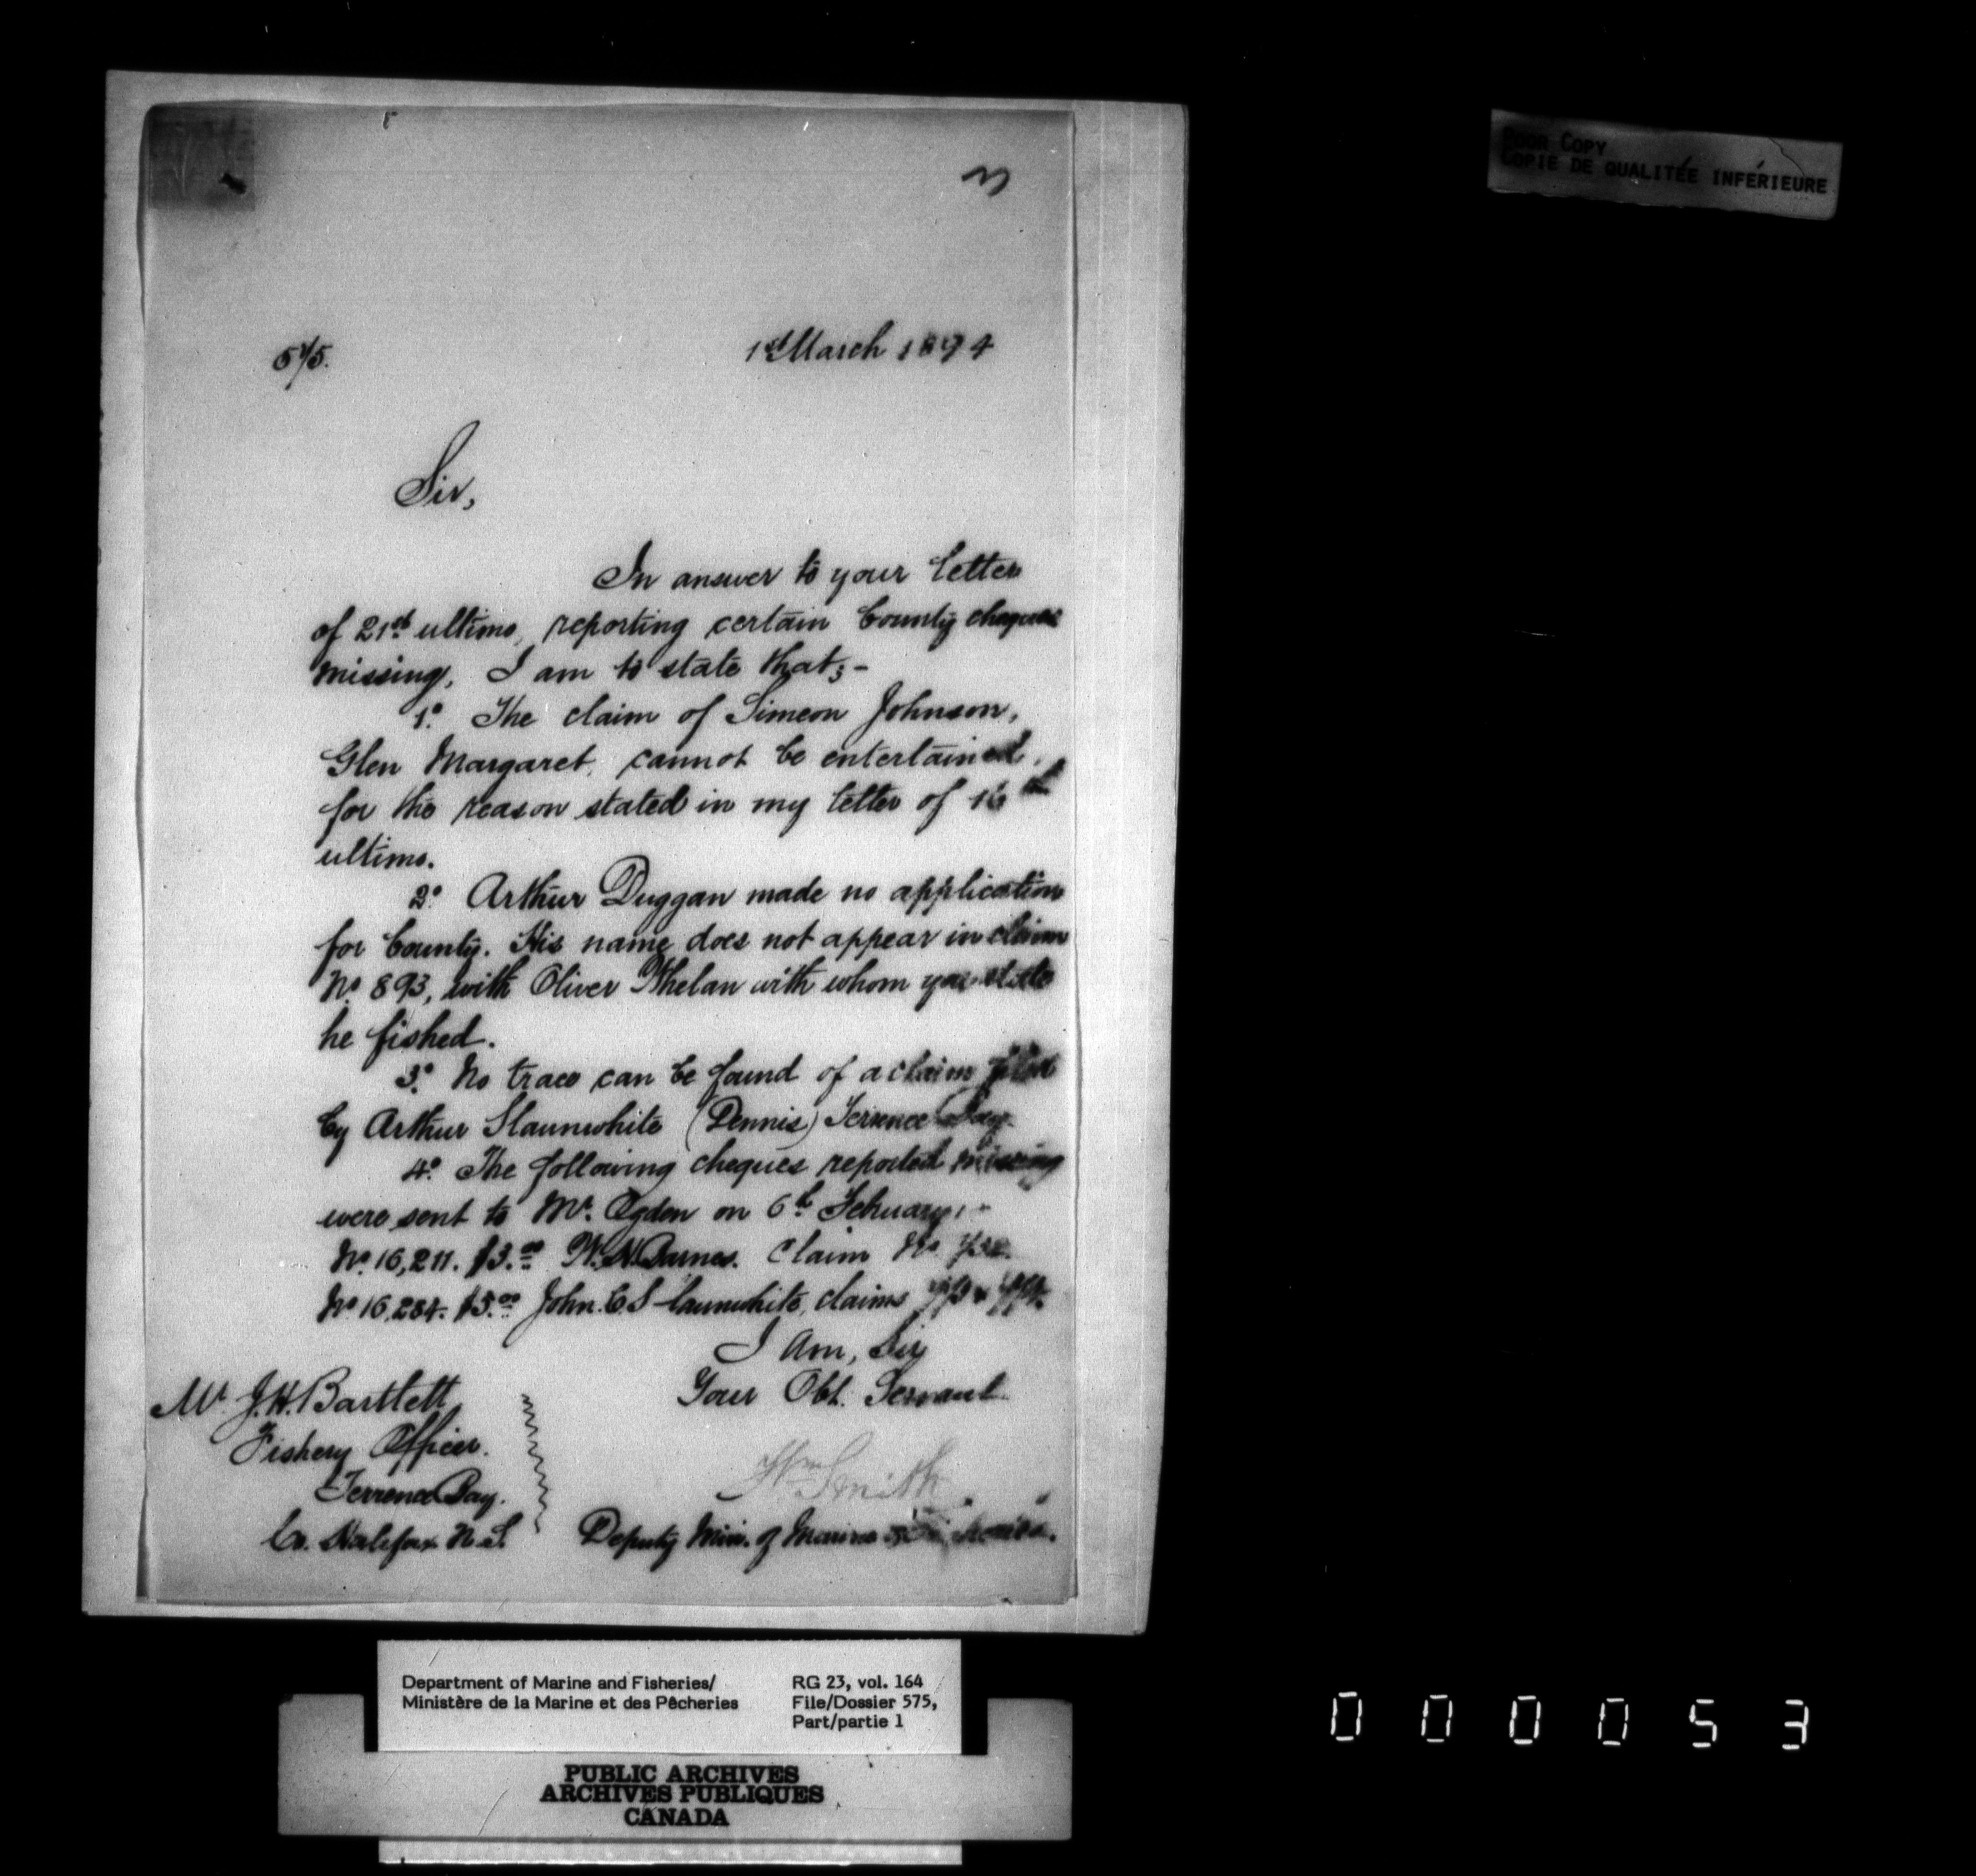 POOR COPY
COPIE DE QUALITÉE INFÉRIEURE
575.
1st March 1894
Sir,
In answer to your letter
of 21st ultimo, reporting certain bounty cheques
missing, I am to state that;-
1o. The claim of Simeon Johnson,
Glen Margaret, cannot be entertained,
for the reason stated in my letter of 16th
ultimo.
2o. Arthur Duggan made no application
for bounty. His name does not appear in claim
No. 893, with Oliver Whelan with whom you state
he fished.
3o. No trace can be found of a claim filed
by Arthur Slaunwhite (Dennis) Terrence Bay.
4o. The following cheques reported missing
were sent to Mr. Ogden on 6th February,-
No. 16,211. $3.00 W. N. Barnes. Claim No
No 16,284. $5.00 John. C. Slaunwhite, claims
I am, Sir
Your Obt. Servant
Wm Smith
Deputy Min. of Marine & Fisheries.
Mr J. H. Bartlett
Fishery Officer.
Terrence Bay.
Co. Halifax N.S.
Department of Marine and Fisheries/
Ministère de la Marine et des Pêcheries
RG 23, vol. 164
File/Dossier 575,
Part/partie 1
PUBLIC ARCHIVES
ARCHIVES PUBLIQUES
CANADA
000053